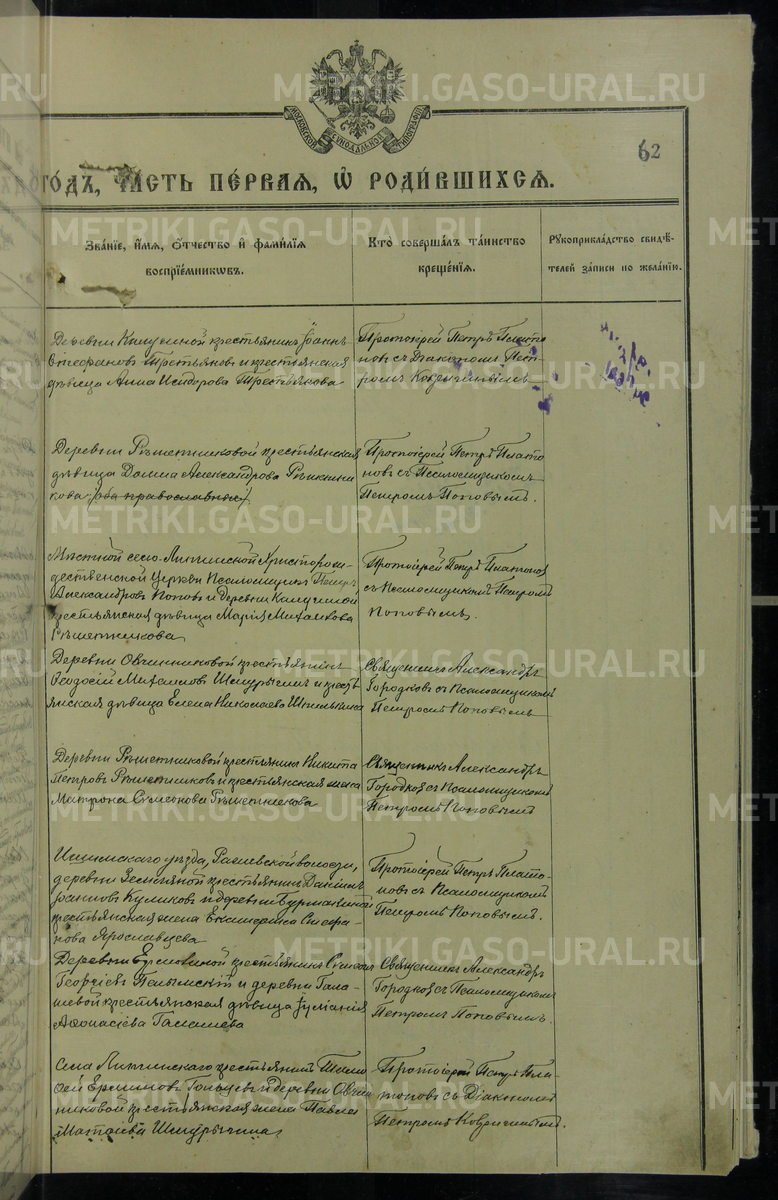 62
МОСКОВСКОЙ СѴНОДАЛЬНОЙ ТИПОГРАФІИ
ГО́ДЪ, ЧА́СТЬ ПЕ́РВАЯ, Ѡ РОДИ́ВШИХСЯ.
Зва́нїе, и́мѧ, о́тчество и҆ фами́лїѧ
воспрїе́мниковъ.
Кто̀ соверша́лъ та́инство
креще́нїѧ.
Рꙋкоприкла́дство свидѣ́-
телей за́писи по жела́нїю.
Деревни крестьянинъ Іоаннъ
Стефановъ Третьяковъ и крестьянская
дѣвица Анна Исидорова Третьякова
Протоіерей Петръ Плато
новъ съ Діакономъ Пет-
ромъ
Деревни Рѣшетниковой крестьянская
дѣвица Домна Александрова Рѣшетни
кова
Протоіерей Петръ Плато
новъ съ Псаломщикомъ
Петромъ Поповымъ.
Мѣстной село-Липчинской Христорож-
дественской Церкви Псаломщикъ Петръ
Александровъ Поповъ и деревни
крестьянская дѣвица Марія Михаилова
Рѣшетникова
Протоіерей Петръ Платоновъ
съ Псаломщикомъ Петромъ
Поповымъ.
Деревни Овчинниковой крестьянинъ
Ѳеодосій Михаиловъ Шмурыгинъ и крестъ
янская дѣвица Елена Николаева
Священникъ Александръ
Городковъ съ Псаломщикомъ
Петромъ Поповымъ
Деревни Рѣшетниковой крестьянинъ Никита
Петровъ Рѣшетниковъ и крестьянская жена
Матрона Семенова Рѣшетникова
Священникъ Александръ
Городковъ съ Псаломщикомъ
Петромъ Поповымъ
Ишимскаго уѣзда, волости,
деревни Земляной крестьянинъ Даніилъ
Іоанновъ Куликовъ и деревни Бурмакиной
крестьянская жена Екатерина Стефа-
нова Ярославцева
Протоіерей Петръ Плато-
новъ съ Псаломщикомъ
Петромъ Поповымъ.
Деревни крестьянинъ
Георгіевъ Пелымскій и деревни Гала-
шевой крестьянская дѣвица Іуліанія
Аѳонасіева Галашева
Священникъ Александръ
Городковъ съ Псаломщикомъ
Петромъ Поповымъ.
Села Липчинскаго крестьянинъ
и деревни Овчин
никовой крестьянская жена Павла
Матѳіева Шмурыгина
Протоіерей Петръ Пла-
тоновъ съ Діакономъ
Петромъ
METRIKI.GASO-URAL.RU